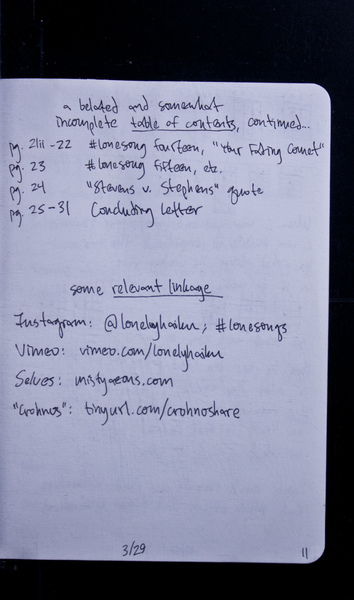 a belated and somewhat
incomplete table of contents, continued...
pg. 21ii-22 #lonesong fourteen, "Your Fading Comet"
pg. 23 #lonesong fifteen, etc.
pg. 24 "Stevens v. Stephens" quote
pg. 25-31 Concluding Letter
some relevant linkage
Instagram: @lonelyhaiku; #lonesongs
Vimeo: vimeo.com/lonelyhaiku
Selves: mistyaeons.com
"Crohnos": tinyurl.com/crohnoshare
3/29
11